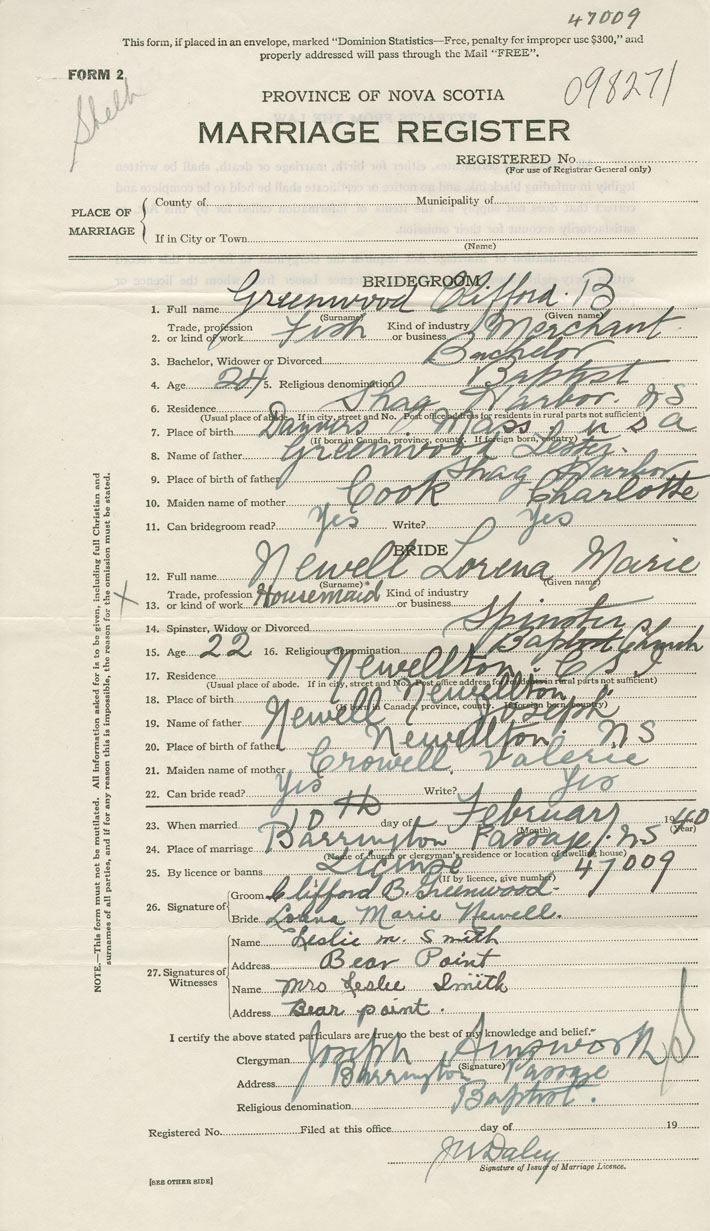 47009
This form, if placed in an envelope, marked "Dominion Statistics—Free, penalty for improper use $300," and
properly addressed will pass through the Mail "FREE".
FORM 2
Shelb
098271
PROVINCE OF NOVA SCOTIA
MARRIAGE REGISTER
REGISTERED No.
(For use of Registrar General only)
PLACE OF MARRIAGE
County of Municipality of
If in City or Town
(Name)
BRIDEGROOM
1. Full name Greenwood Clifford. B
(Surname) (Given name)
2. Trade, profession or kind of work Fish Kind of industry or business Merchant.
3. Bachelor, Widower or Divorced Bachelor
4. Age 24 5. Religious denomination Baptist
6. Residence Shag Harbor. NS
(Usual place of abode. If in city, street and No. Post office address for residents in rural parts not sufficient)
7. Place of birth Danvers. Mass. U S a
(If born in Canada, province, county. If foreign born, country)
8. Name of father Greenwood Lester.
9. Place of birth of father Shag Harbor
10. Maiden name of mother Cook Charlotte
11. Can bridegroom read? Yes Write? Yes
BRIDE
12. Full name Newell Lorena Marie
(Surname) (Given name)
13. Trade, profession or kind of work Housemaid Kind of industry or business
X
14. Spinster, Widow or Divorced Spinster
15. Age 22 16. Religious denomination Baptist Church
17. Residence Newellton. C. S. I
(Usual place of abode. If in city, street and No. Post office address for residents in rural parts not sufficient)
18. Place of birth Newellton
(If born in Canada, province, county. If foreign born, country)
19. Name of father Newell Joseph
20. Place of birth of father Newellton. NS
21. Maiden name of mother Crowell Valerie
22. Can bride read? Yes Write? Yes
23. When married 10th day of February 1940
(Month) (Year)
24. Place of marriage Barrington Passage. NS
(Name of church or clergyman's residence or location of dwelling house)
25. By licence or banns License 47009
(If by licence, give number)
26. Signature of
Groom Clifford B. Greenwood.
Bride Lorena Marie Newell.
27. Signatures of Witnesses
Name Leslie M. Smith
Address Bear Point
Name Mrs Leslie Smith
Address Bear point.
I certify the above stated particulars are true to the best of my knowledge and belief."
Clergyman Joseph Ainsworth
(Signature)
Address Barrington Passage
Religious denomination Baptist.
Registered No. Filed at this office day of 19
J W Daley
Signature of Issuer of Marriage Licence.
[SEE OTHER SIDE]
NOTE.—This form must not be mutilated. All information asked for is to be given, including full Christian and
surnames of all parties, and if for any reason this is impossible, the reason for the omission must be stated.